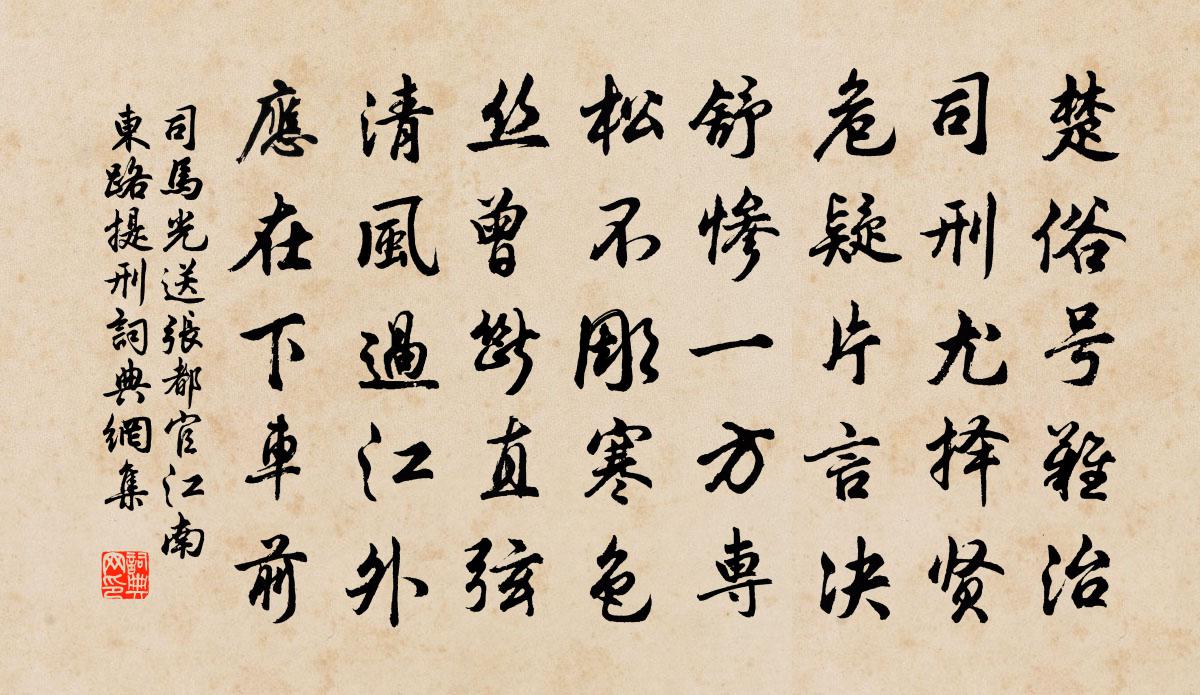 楚俗号难治
司刑尤择贤
危疑片言决
舒惨一方専
松不彫寒色
丝曾断直弦
清風過江外
應在下車前
司馬光送張都官江南
東路提刑詞典網集
詞典
网印